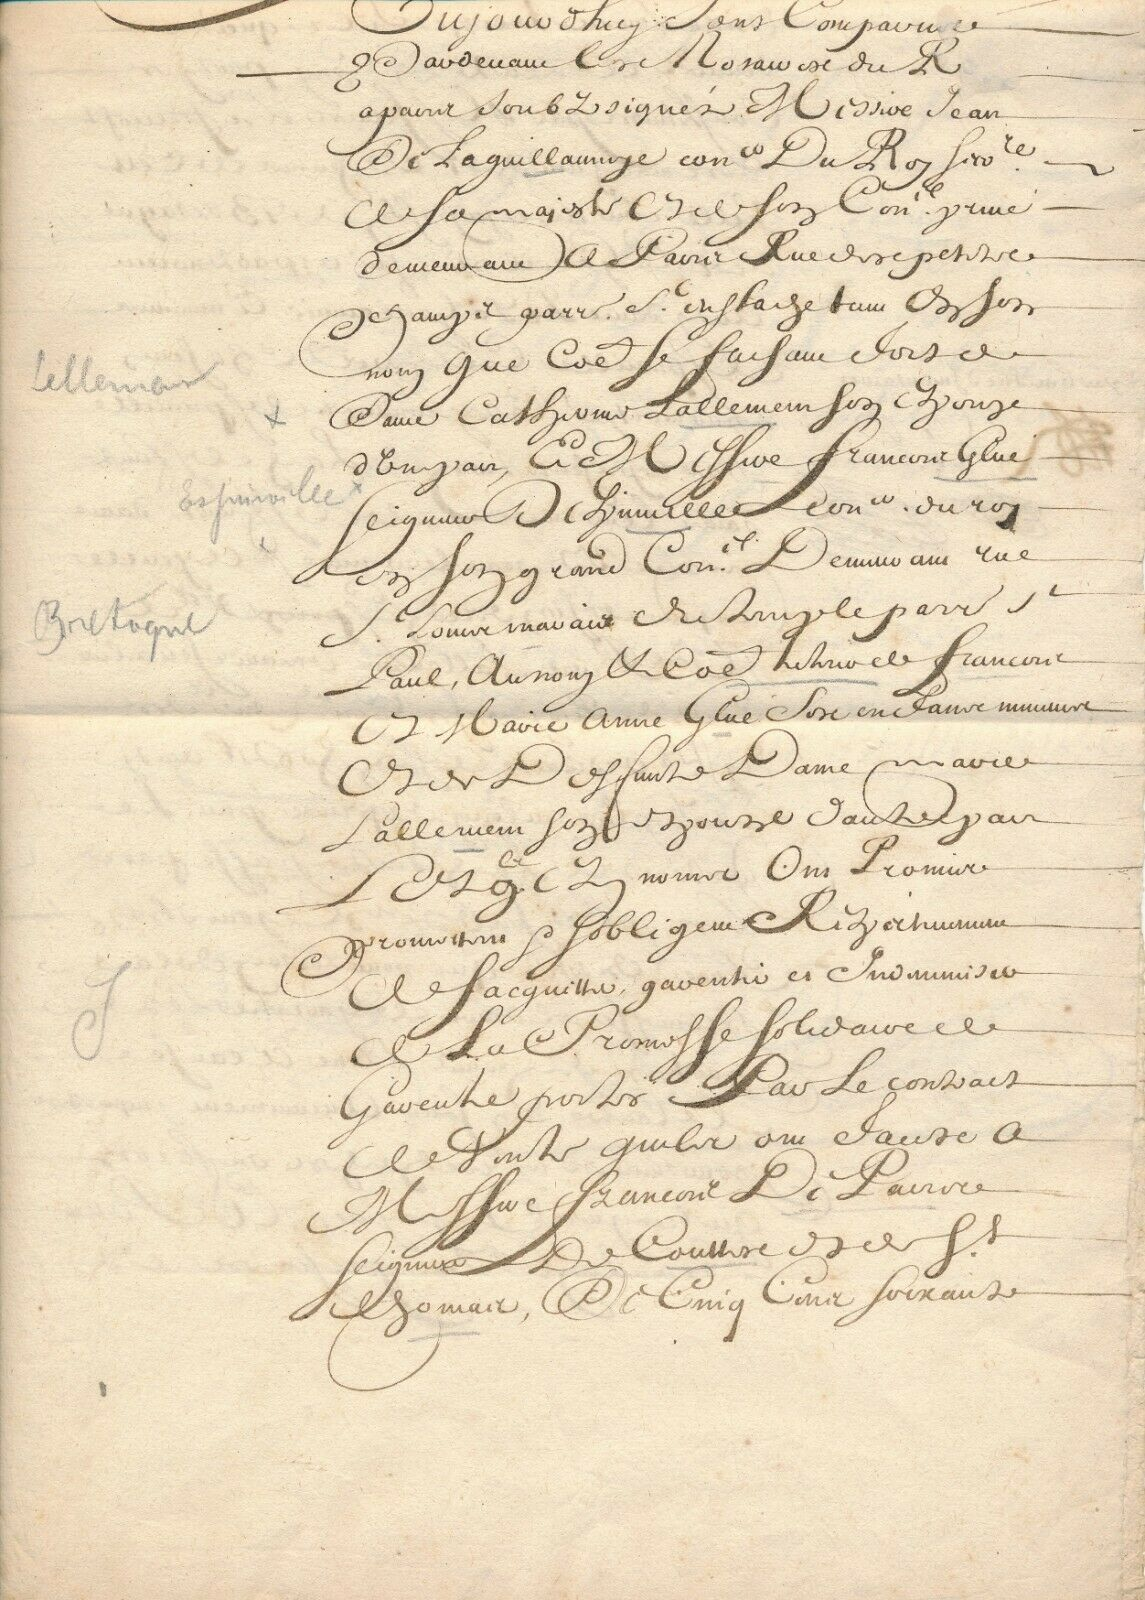 Aujourd'huy sont Comparu
Pardevant les Notaires du R
a paris soubzsignéz Messire Jean
De Laguillaumye con.er Du Roy secre.re
de sa majesté et de son Con.el privé
demeurant a Paris Rue des petits
Champs parr. S.t Eustache tant en son
nom que Coē se faisant fort de
Dame Catherine Lallement son Epouze
d'Une part, Et Messire francois Glué
seigneur D Espinville con.er du roy
en son grand Con.el Demeurant rue
S. Louis marais du temple parr S.t
Paul, Au nom & Coē tuteur de francois
et Marie Anne Glué ses enfans mineurs
et de Deffunte Dame marie
Lallement son espouze d'autre part
Lesq.ls Es noms Ont Promis
promettent & s'obligent Respectivement
de s'acquitter, garentir et Indemniser
de La Promesse solidaire de
Garentie portée Par Le contract
de Vente qu'ils ont faite a
Messire francois De Paris
seigneur De Couttes et de S.t
thomas, De Cinq Cens soixante
Lallemant
Espinville
Bretagne